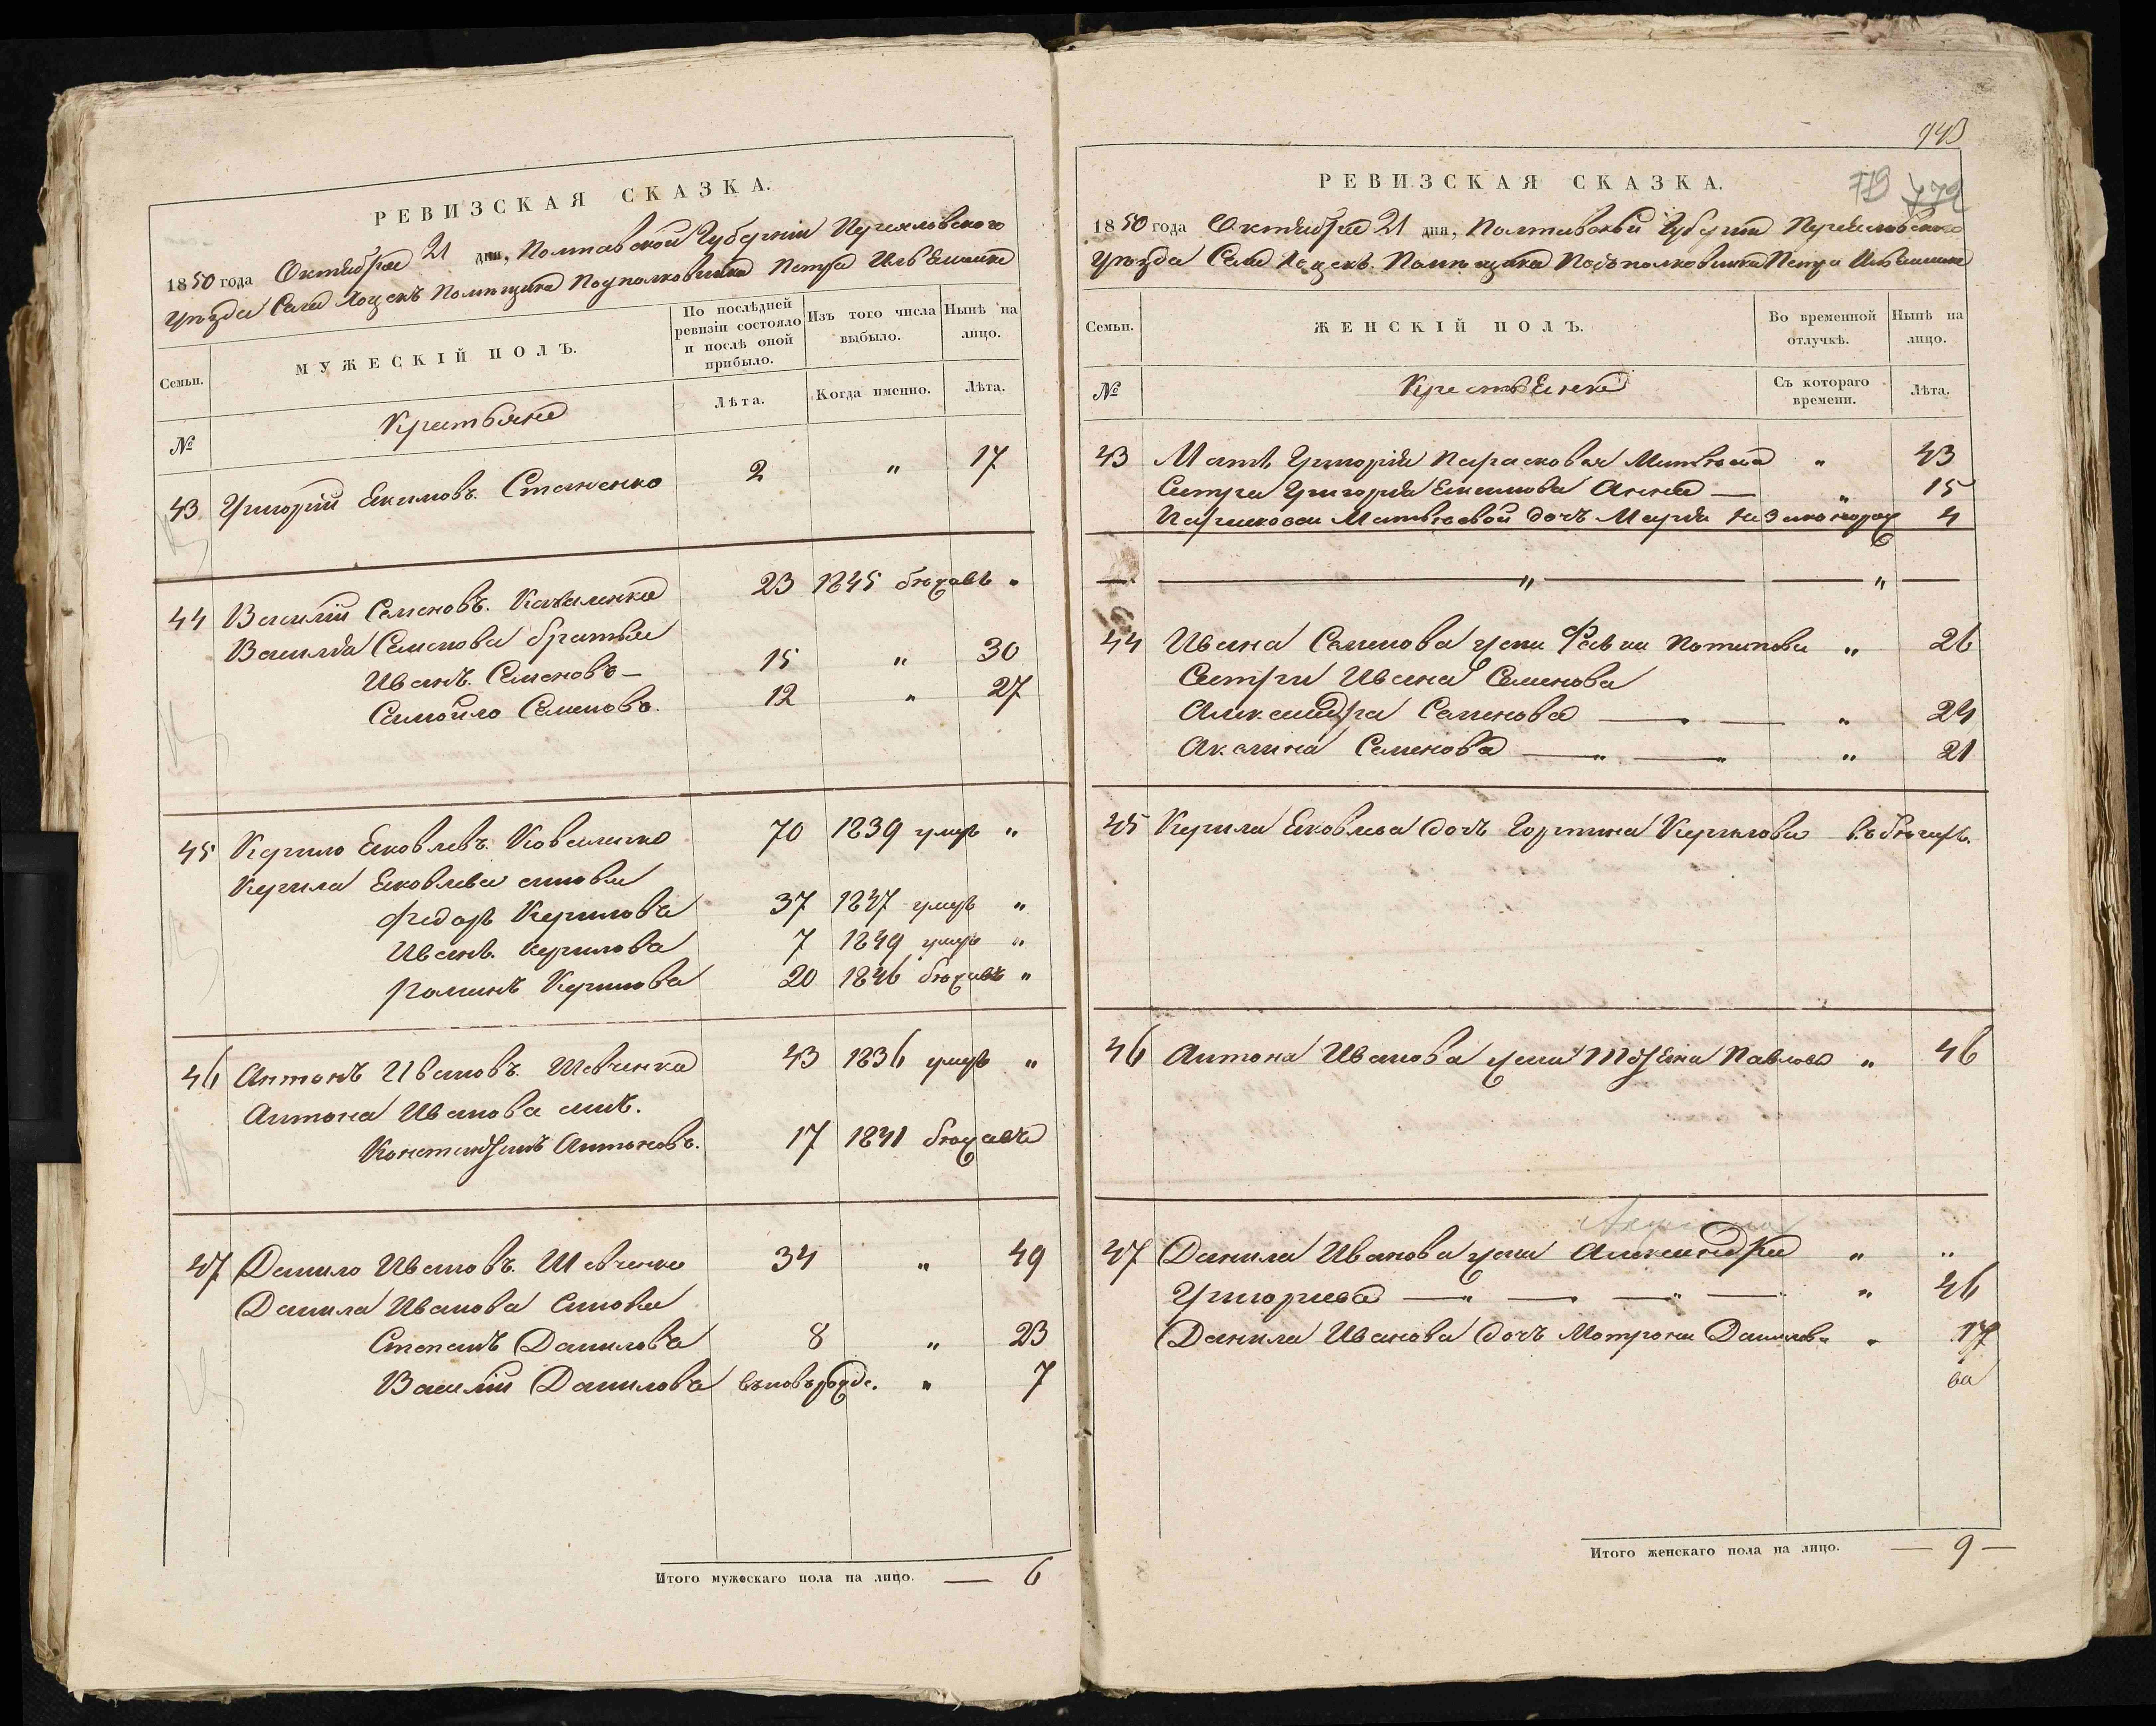 РЕВИЗСКАЯ СКАЗКА.
1850 года Октября 21 дня, Полтавской Губернiи
уѣзда Села Помѣщика Подполковника Петра
Семьи.
МУЖЕСКIЙ ПОЛЪ.
По послѣдней ревизiи состояло и послѣ оной прибыло.
Изъ того числа выбыло.
Нынѣ на лицо.
№
Лѣта.
Когда именно.
Лѣта.
Крестьяне
43 Григорiй Екимовъ Стаценко 2 " 17
44 Василiй Семеновъ 23 1845 бѣжавъ "
Василiя Семенова братья
Иванъ Семеновъ — 15 " 30
Самойло Семеновъ 12 " 27
45 Кирило Яковлевъ Коваленко 70 1839 умеръ "
Кирила Яковлева сыновья
Федоръ Кирилова 37 1847 умеръ "
Иванъ Кирилова 7 1849 умеръ "
Романъ Кирилова 20 1846 бѣжавъ "
46 Антонъ Ивановъ Шевченко 43 1836 умеръ "
Антона Иванова сынъ
Константинъ Антоновъ 17 1841 бѣжавъ
47 Данило Ивановъ Шевченко 34 " 49
Данила Иванова сыновья
Степанъ Данилова 8 " 23
Василiй Данилова вновь рожде. " 7
Итого мужескаго пола на лицо. — 6
943
719 772
РЕВИЗСКАЯ СКАЗКА.
1850 года Октября 21 дня, Полтавской Губернiи
уѣзда Села Помѣщика Подполковника Петра
Семьи.
ЖЕНСКIЙ ПОЛЪ.
Во временной отлучкѣ.
Нынѣ на лицо.
№
Съ котораго времени.
Лѣта.
Крестьянки
43 Мать Григорiя Парасковья Матвѣева " 43
Сестра Григорiя Екимова Анна — " 15
Парасковьи Матвѣевой дочь Марiя незаконорож 4
— " — " —
44 Ивана Семенова жена Потапова " 26
Сестры Ивана Семенова
Александра Семенова — " 24
Акилина Семенова — " 21
45 Кирила Яковлева дочь Горпина Кирилова въ бѣгахъ
46 Антона Иванова жена Татьяна Павлова " 46
47 Данила Иванова жена Александра " "
Григорьева — " — " 46
Данила Иванова дочь Мотрона Данилова " 17
ва
Итого женскаго пола на лицо. — 9 —